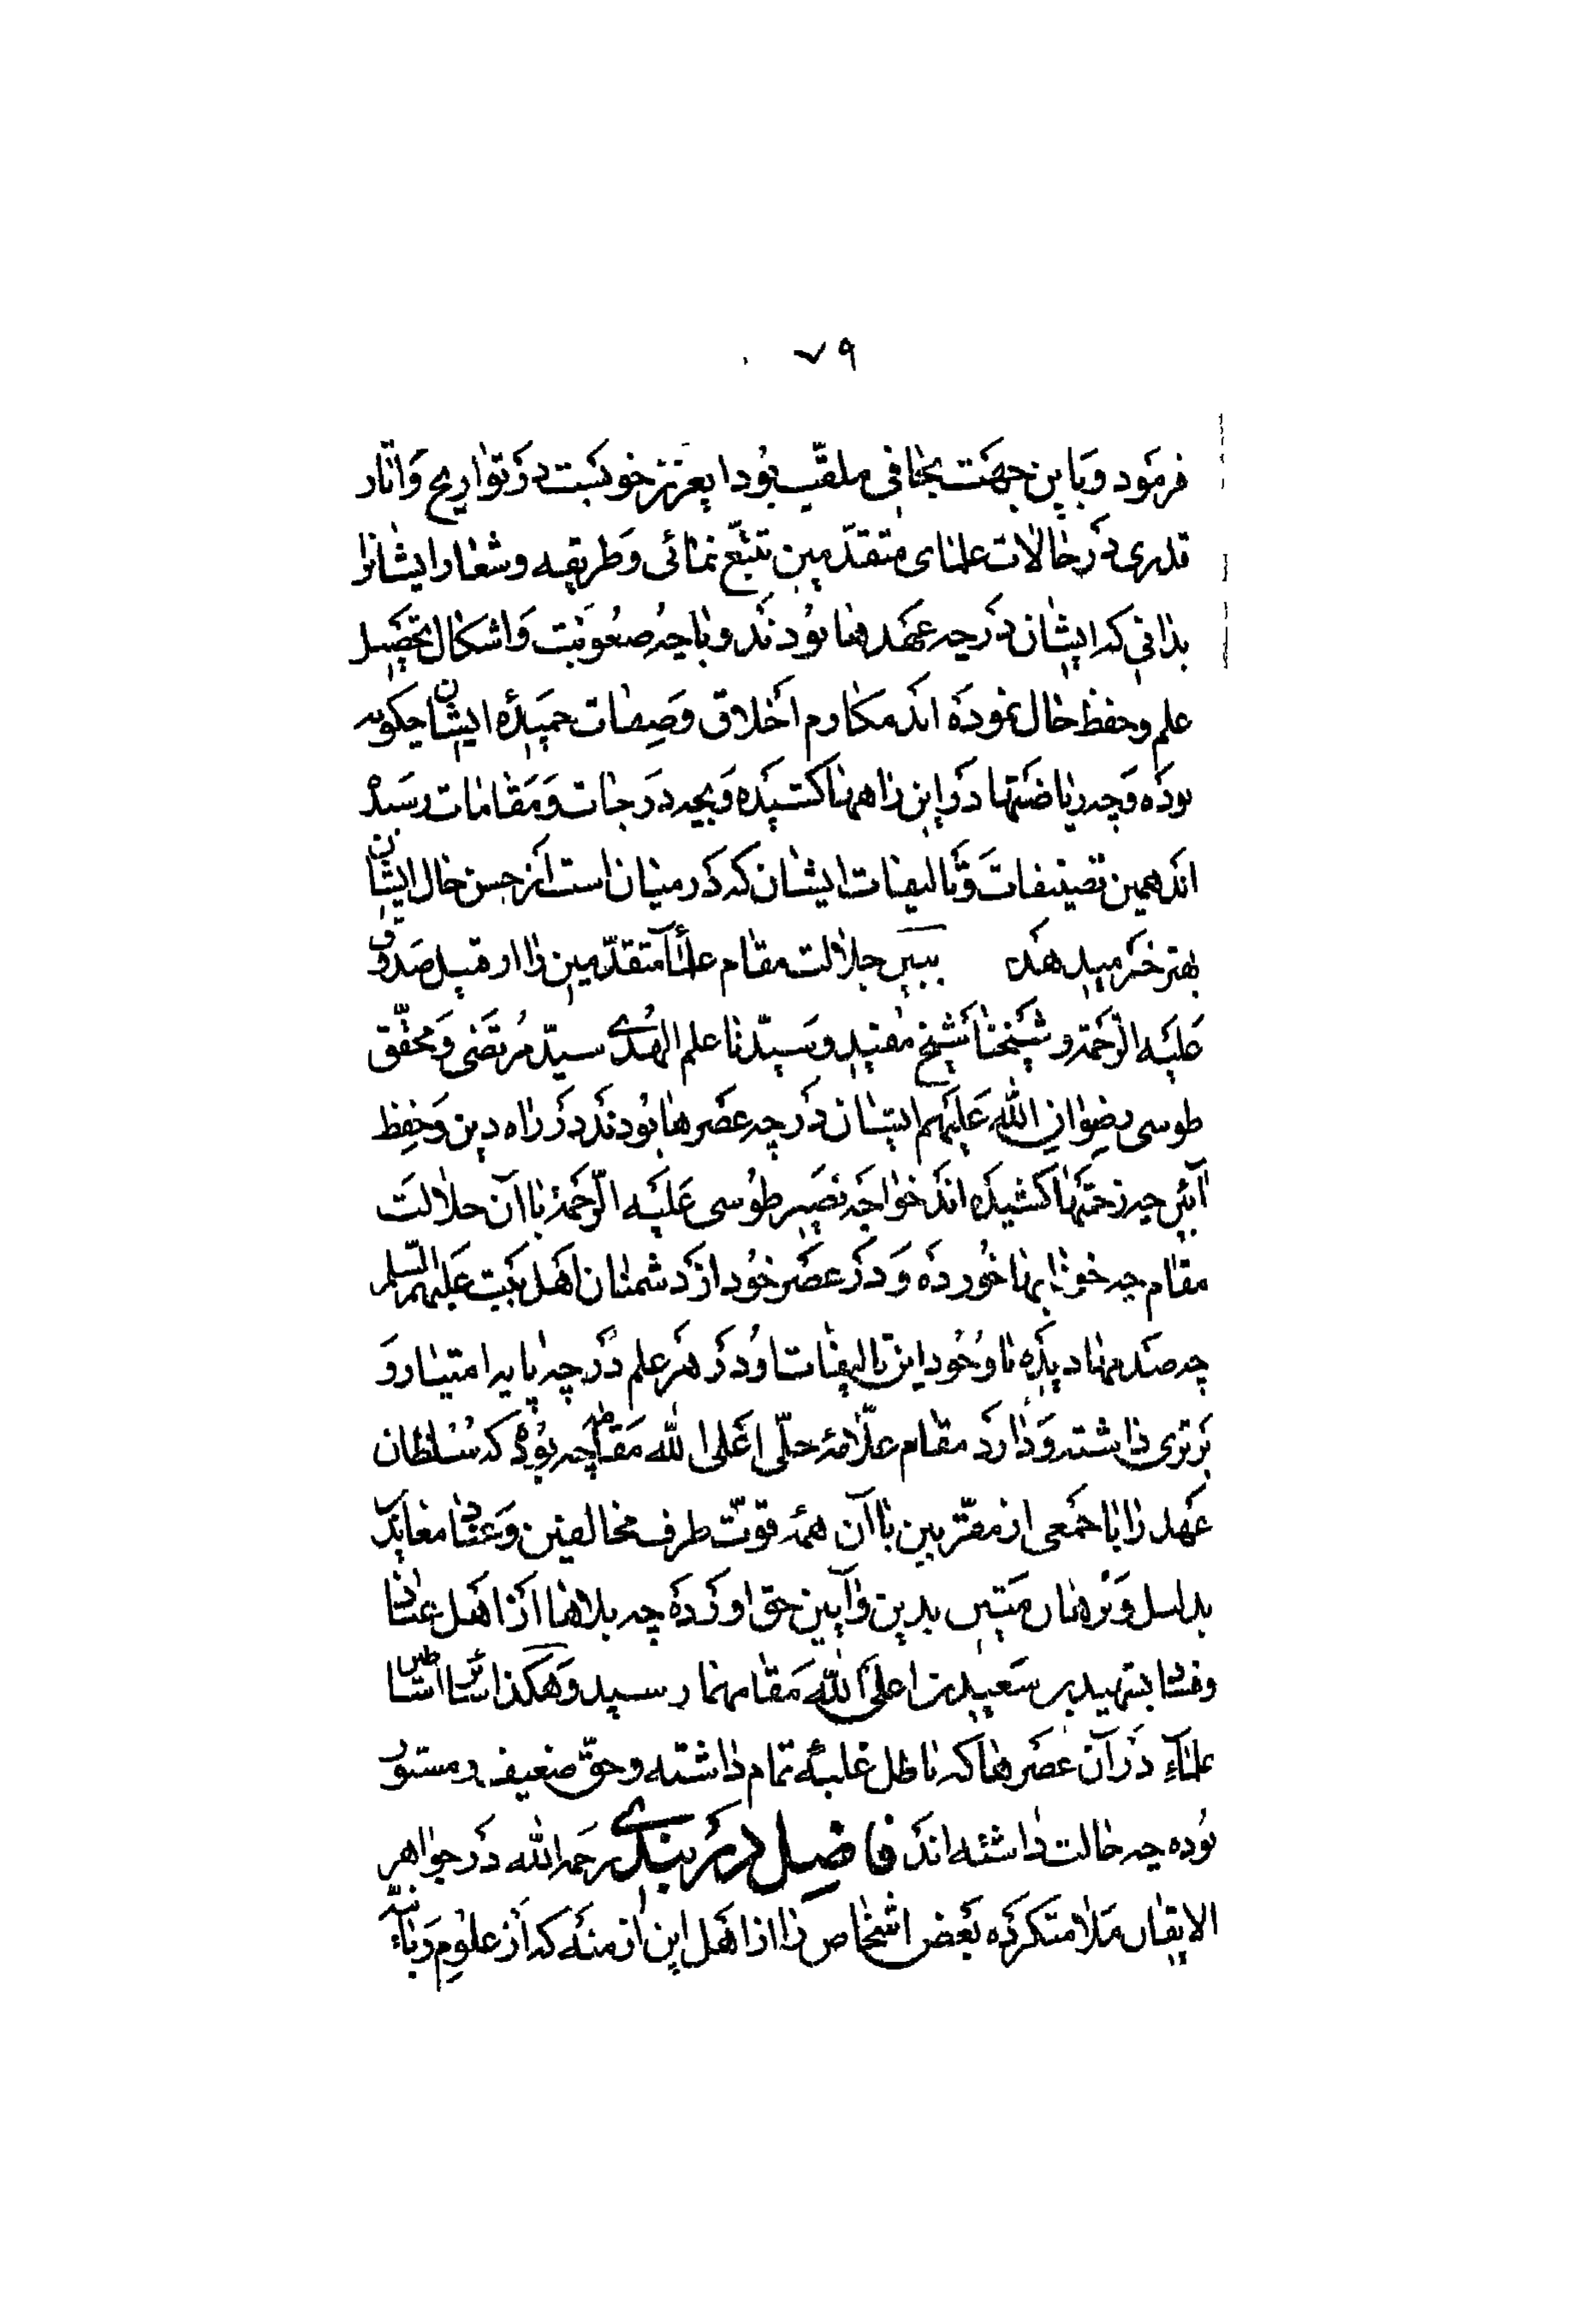 ٧٩
فرمود و باین جهت بحافی ملقّب بود ای عزیز خوبست در تواریخ و اثار
قدری در حالات علمای متقدّمین تتبّع نمائی و طریقه و شعار ایشانرا
بدانی که ایشان در چه عهدها بودند و با چه صعوبت و اشکال تحصیل
علم و حفظ حال نموده اند مکارم اخلاق و صفات حمیدهٔ ایشان چگونه
بوده و چه ریاضتها در این راهها کشیده و بچه درجات و مقامات رسیده
اند همین تصنیفات و تالیفات ایشان که در میان است از حسن حال ایشان
بهتر خبر میدهد ببین جلالت مقام علمآء متقدّمین را از قبیل صدوق
علیه الرّحمة و شیخنا شیخ مفید و سیّدنا علم الهدی سیّد مرتضی و محقّق
طوسی رضوان الله علیهم ایشان در چه عصرها بودند در راه دین و حفظ
آئین چه زحمتها کشیده اند خواجه نصیر طوسی علیه الرّحمة با آن جلالت
مقام چه خونابها خورده و در عصر خود از دشمنان اهل بیت علیهم السّلم
چه صدمها دیده با وجود این تالیفات او در هر علم در چه پایه امتیاز و
برتری داشته و دارد مقام علّامهٔ حلّی اعلی الله مقامه چه بوده که سلطان
عهد را با جمعی از مقرّبین با آن همه قوّت طرف مخالفین و عناد معاندین
بدلیل و برهان متین بدین و آیین حق اورده چه بلاها از اهل عناد
و فساد بشهیدین سعیدین اعلی الله مقامهما رسید و هکذا سائر اساطین
علمآء در آن عصرها که باطل غلبهٔ تمام داشته و حقّ ضعیف و مستور
بوده چه حالت داشته اند فاضل دربندی رحمه الله در جواهر
الایقان ملامت کرده بعض اشخاص را از اهل این ازمنه که از علوم ربّانیّه